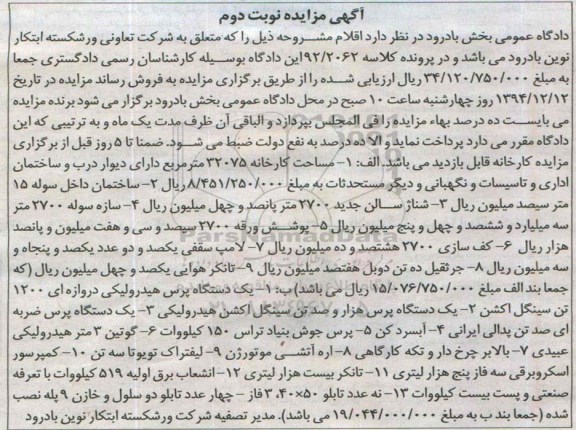 آگهی مزایده نوبت دوم
دادگاه عمومی بخش بادرود در نظر دارد اقلام مشروحه ذیل را که متعلق به شرکت تعاونی ورشکسته ابتکار
نوین بادرود می باشد و در پرونده کلاسه ۹۲/۲۰۶۲ این دادگاه بوسیله کارشناسان رسمی دادگستری جمعا
به مبلغ ۳۴/۱۲۰/۷۵۰/۰۰۰ ریال ارزیابی شده را از طریق برگزاری مزایده به فروش رساند مزایده در تاریخ
۱۳۹۴/۱۲/۱۲ روز چهارشنبه ساعت ۱۰ صبح در محل دادگاه عمومی بخش بادرود برگزار می شود برنده مزایده
می بایست ده درصد بهاء مزایده را فی المجلس بپردازد و الباقی آن ظرف مدت یک ماه و به ترتیبی که این
دادگاه مقرر می دارد پرداخت نماید و الا ده درصد به نفع دولت ضبط می شود. ضمنا ۵ روز قبل از برگزاری
مزایده کارخانه قابل بازدید می باشد. الف: ۱- مساحت کارخانه ۳۲۰۷۵ مترمربع دارای دیوار درب و ساختمان
اداری و تاسیسات و نگهبانی و دیگر مستحدثات به مبلغ ۸/۴۵۱/۲۵۰/۰۰۰ ریال ۲- ساختمان داخل سوله ۱۵
متر سیصد میلیون ریال ۳- شناژ سالن جدید ۲۷۰۰ متر پانصد و چهل میلیون ریال ۴- سازه سوله ۲۷۰۰ متر
سه میلیارد و ششصد و چهل و پنج میلیون ریال ۵- پوشش ورقه ۲۷۰۰ سیصد و سی و هفت میلیون و پانصد
هزار ریال ۶- کف سازی ۲۷۰۰ هشتصد و ده میلیون ریال ۷- لامپ سقفی یکصد و دو عدد یکصد و پنجاه و
سه میلیون ریال ۸- جرثقیل ده تن دوبل هفتصد میلیون ریال ۹- تانکر هوایی یکصد و چهل میلیون ریال (که
جمعا بند الف مبلغ ۱۵/۰۷۶/۷۵۰/۰۰۰ ریال می باشد) ب: ۱- یک دستگاه پرس هیدرولیکی دروازه ای ۱۲۰۰
تن سینگل اکشن ۲- یک دستگاه پرس هزار و صد تن سینگل اکشن هیدرولیکی ۳- یک دستگاه پرس ضربه
ای صد تن پدالی ایرانی ۴- آبسرد کن ۵- پرس جوش بنیاد تراس ۱۵۰ کیلووات ۶- گوتین ۳ متر هیدرولیکی
عبیدی ۷- بالابر چرخ دار و تکه کارگاهی ۸- اره آتشی موتورژن ۹- لیفتراک تویوتا سه تن ۱۰- کمپرسور
اسکرو برقی سه فاز پنج هزار لیتری ۱۱- تانکر بیست هزار لیتری ۱۲- انشعاب برق اولیه ۵۱۹ کیلووات با تعرفه
صنعتی و پست بیست کیلووات ۱۳- نه عدد تابلو ۵۰×۴۰، ۳ فاز - چهار عدد تابلو دو سلول و خازن ۹ پله نصب
شده (جمعا بند ب به مبلغ ۱۹/۰۴۴/۰۰۰/۰۰۰ می باشد). مدیر تصفیه شرکت ورشکسته ابتکار نوین بادرود